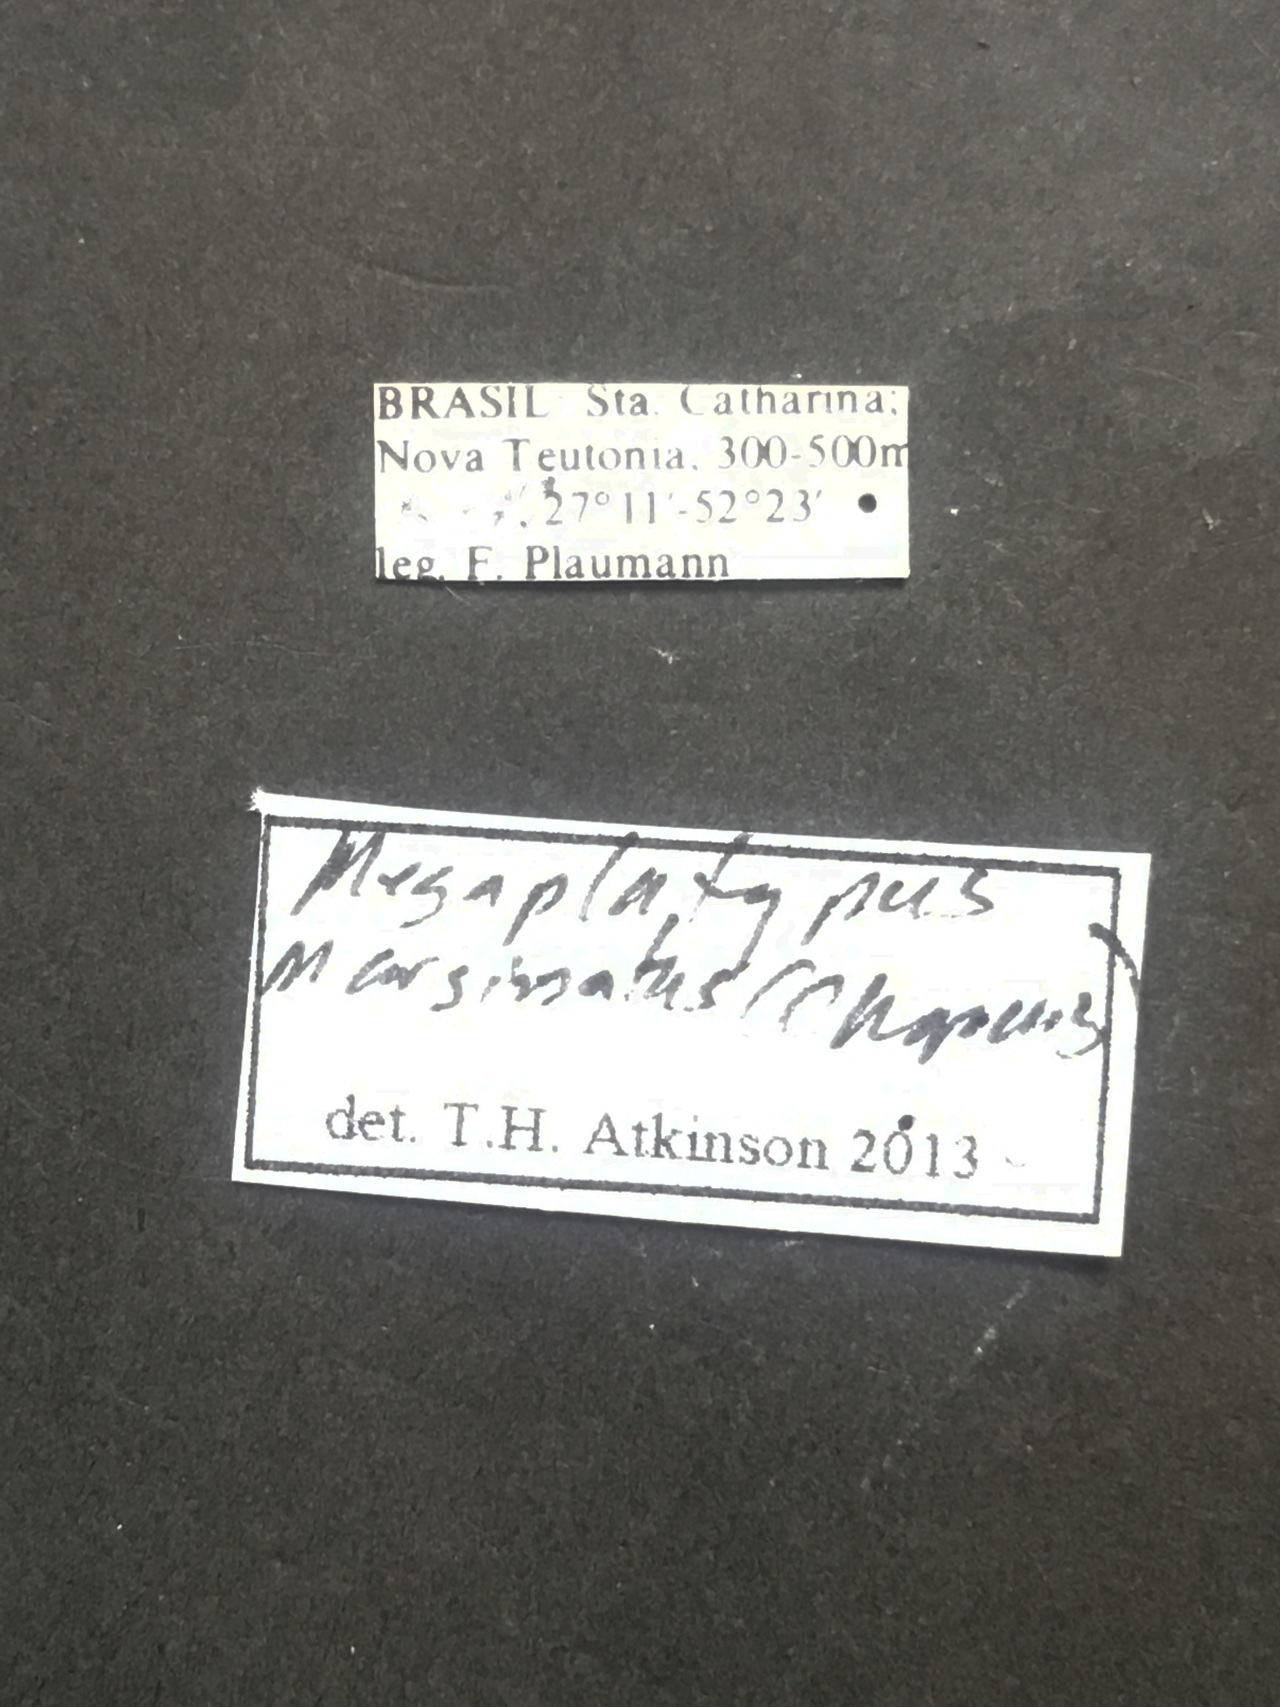 BRASIL Sta. Catharina;
Nova Teutonia, 300-500m
27°11′-52°23′
leg. F. Plaumann
Megaplatypus
marginatus (Chapuis)
det. T.H. Atkinson 2013